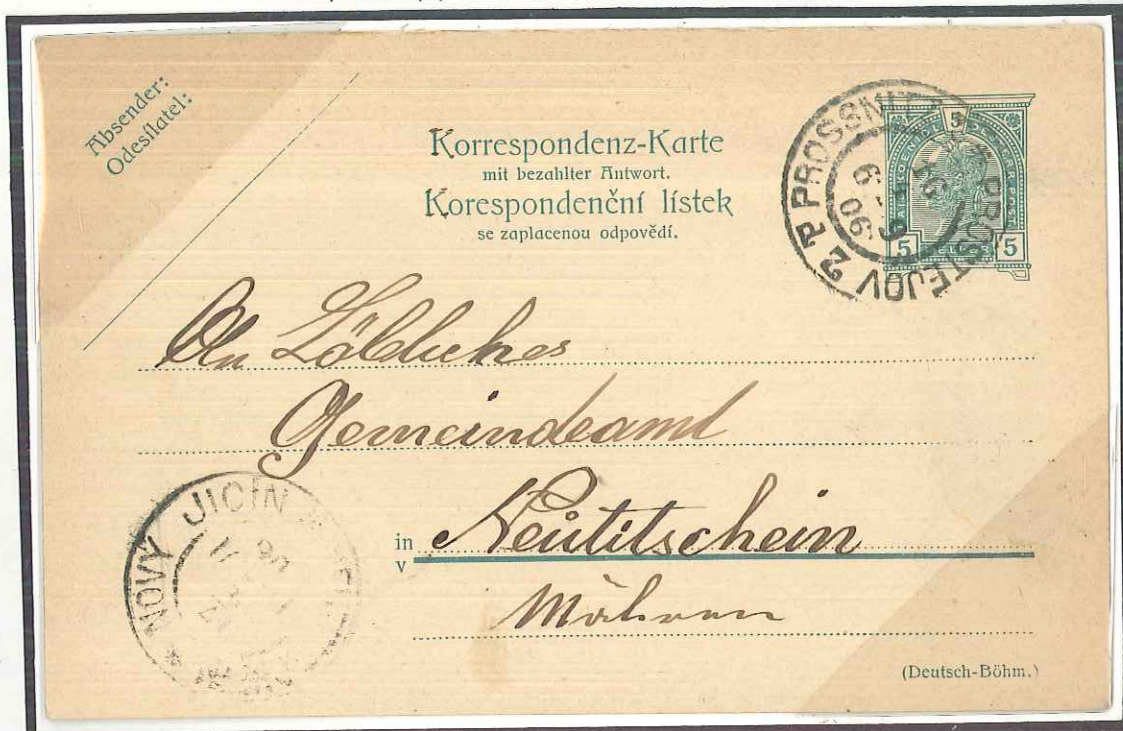 Absender:
Odesílatel:
Korrespondenz-Karte
mit bezahlter Antwort.
Korespondenční lístek
se zaplacenou odpovědí.
PROSSNITZ
PROSTĚJOV 2
5
5 HELLER 5
An Löbliches
Gemeindeamt
in Neutitschein
v
Mähren
NOVÝ JIČÍN
(Deutsch-Böhm.)